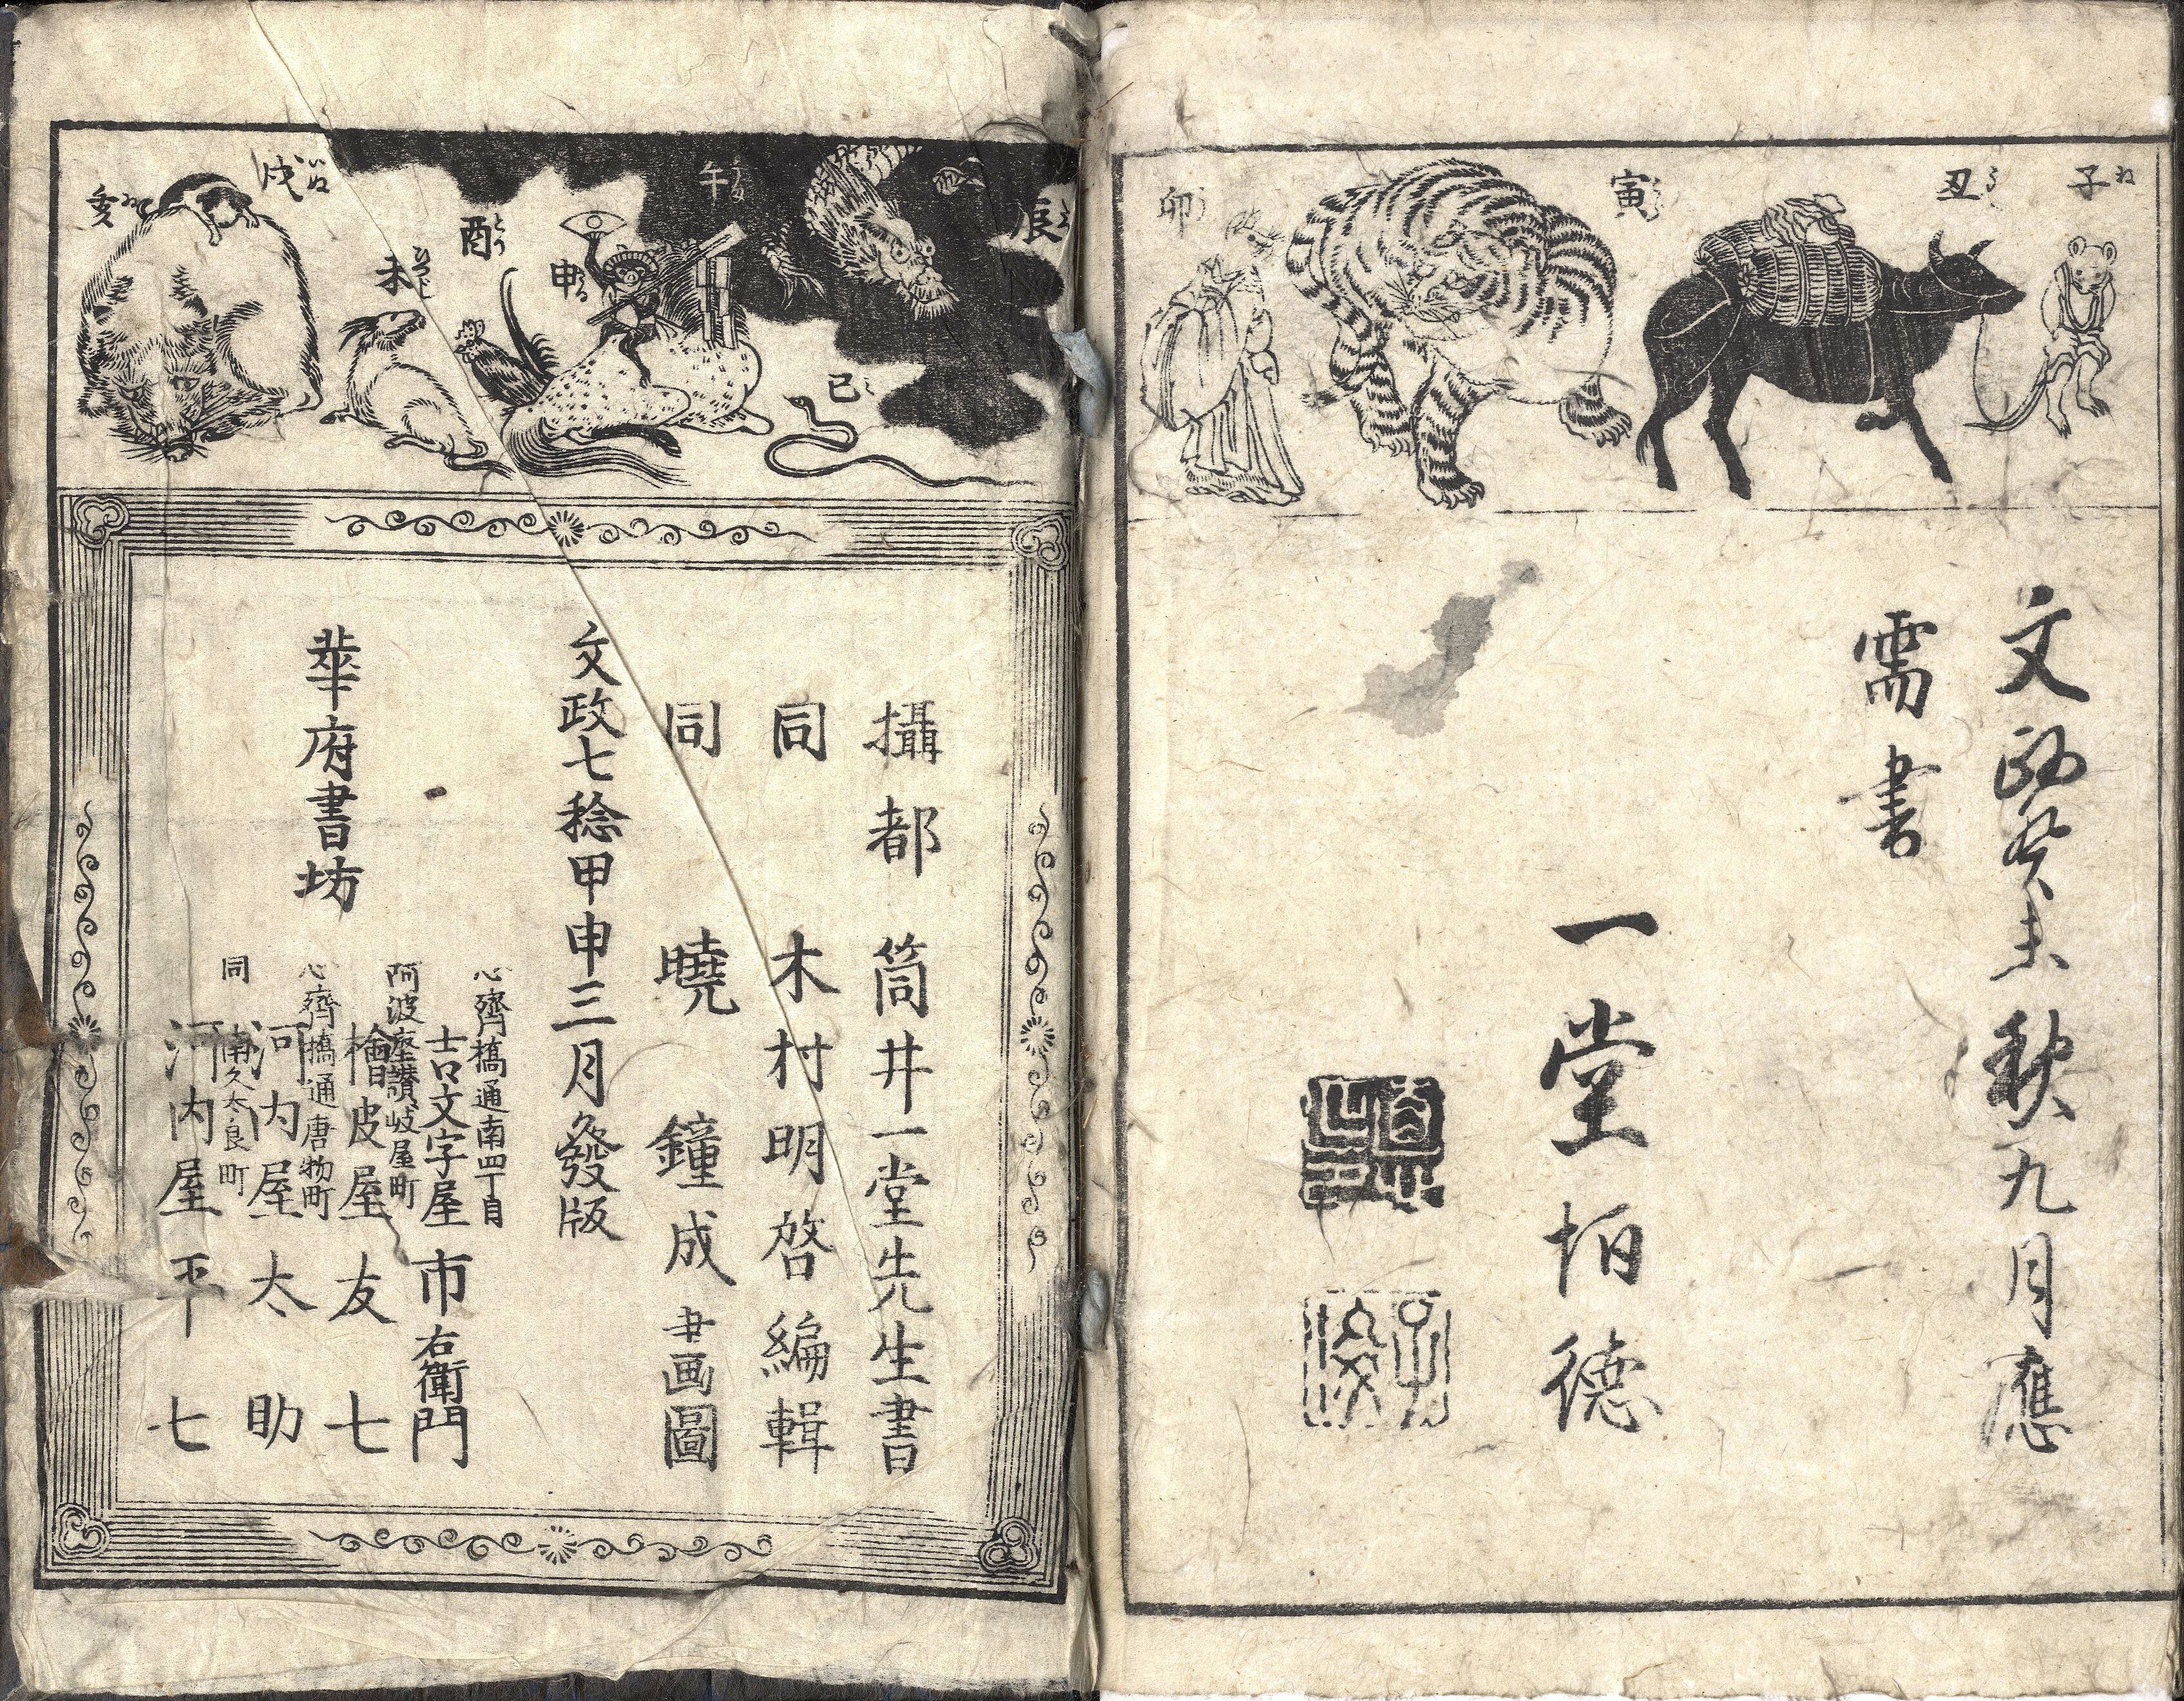 子 ね
丑 うし
寅 とら
卯 う
文政癸未秋九月應
需書
一堂栢德
辰
巳 み
午 むま
申 さる
酉 とり
未 ひつじ
戌 いぬ
亥 ゐ
攝都 筒井一堂先生書
同 木村明啓編輯
同 曉鐘成畫画圖
文政七稔甲申三月發版
華府書坊
心齊橋通南四丁目
吉文字屋市右衛門
阿波座讃岐屋町
檜皮屋友七
心齊橋通唐物町
河内屋太助
同 南久太良町
河内屋平七